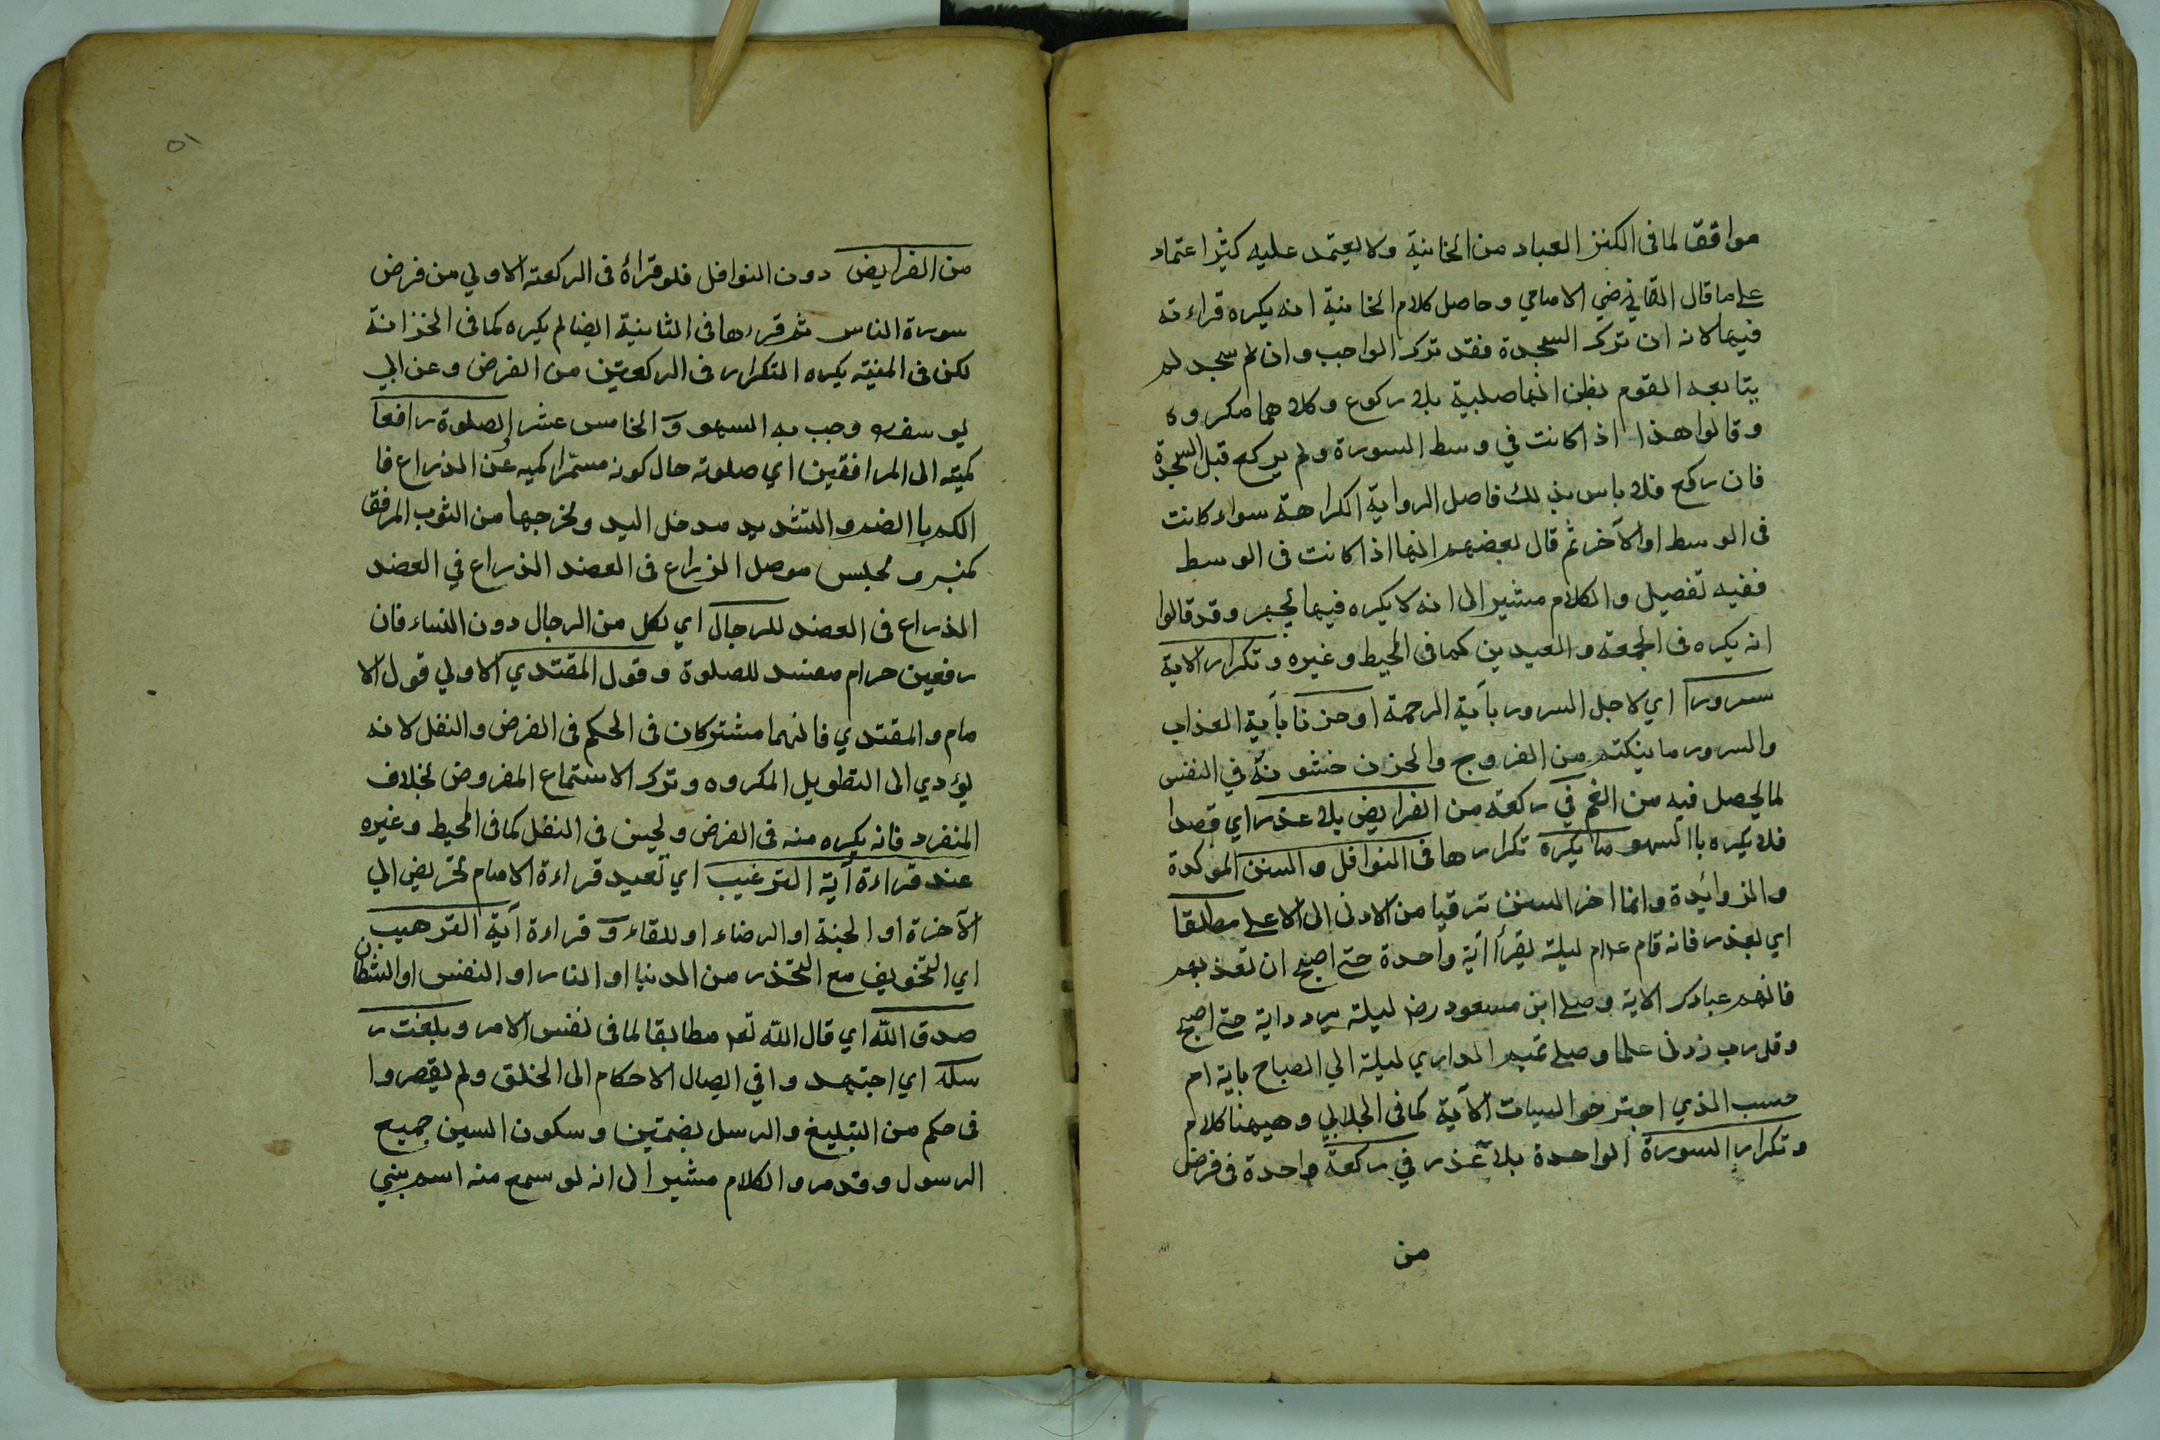 موافقا لما فى الكنز العباد من الخانية ولا يعتمد عليه كثيرا اعتماد
على ما قال القاضي الامامي وحاصل كلام الخانية انه يكره قراءته
فيهما لانه ان ترك السجدة فقد ترك الواجب وان لم سجد لم
يتابعه القوم بظن انها صلبية بلا ركوع وكلاهما مكروه
وقالوا هذا اذا كانت في وسط السورة ولم يركع قبل السجدة
فان ركع فلا باس بذلك فاصل الرواية الكراهة سواء كانت
فى الوسط او الآخر ثم قال بعضهم انها اذا كانت فى الوسط
ففيه تفصيل والكلام مشير الى انه لا يكره فيما يجهر وقد قالوا
انه يكره فى الجمعة والعيدين كما فى المحيط وغيره وتكرار الاية
سرورا اي لاجل السرور بآية الرحمة او حزنا بآية العذاب
والسرور ما ينكتم من الفروج والحزن خشونة في النفس
لما يحصل فيه من الغم في ركعة من الفرايض بلا عذر اي قصدا
فلا يكره باالسهو ما يكره تكرارها فى النوافل والسنن الموكدة
والزوايدة وانما اخر السنن ترقيا من الادنى الى الاعلى مطلقا
اي بعذر فانه قام علام ليلة يقرأ آية واحدة حتى اصبح ان تعذبهم
فانهم عبادك الاية وصلى ابن مسعود رض ليلة يردد اية حتى اصبح
وقل رب زدنى علما وصلى تميم الداري ليلة الي الصباح باية ام
حسب الذي اجترحوا السيات الآية كما فى الجلابي وهيهنا كلام
وتكرار السورة الواحدة بلا عذر في ركعة واحدة فى فرض
من
٥١
من الفرايض دون النوافل فلو قرأة فى الركعة الاولي من فرض
سورة الناس ثم قرءها فى الثانية ايضا لم يكره كما فى الخزانة
لكن فى المنيته يكره التكرار فى الركعتين من الفرض وعن ابي
يوسف وجب به السهو و الخامس عشر الصلوة رافعا
كميته الى المرافقين اي صلوته حال كونه مستمرا كميه عن الذراع فا
الكم باالضم والتشديد مدخل اليد ومخرجها من الثوب المرفق
كمنبر ومجلس موصل الزراع فى العضد الذراع في العضد
الذراع فى العضد للرجال اي لكل من الرجال دون النساء فان
رفعين حرام مفسد للصلوة وقول المقتدي الاولي قول الا
مام والمقتدي فانهما مشتركان فى الحكم فى الفرض والنفل لانه
يؤدي الى التطويل المكروه وترك الاستماع المفروض بخلاف
المنفرد فانه يكره منه فى الفرض ولحين فى النفل كما فى المحيط وغيره
عند قراءة آية الترغيب اي تعيد قراءة الامام تحريض الي
الآخرة او الجنة او الرضاء او للقاء و قراءة آية الترهيب
اي التخويف مع التحذر من الدنيا او النار او النفس او الشطان
صدق الله اي قال الله تعم مطابقا لما فى نفس الامر وبلغت ر
سله اي اجتهد وافي ايصال الاحكام الى الخلق ولم يقصروا
فى حكم من التبليغ والرسل بضمتين وسكون السين جميع
الرسول وقدمر والكلام مشير الى انه لو سمع منه اسم بني